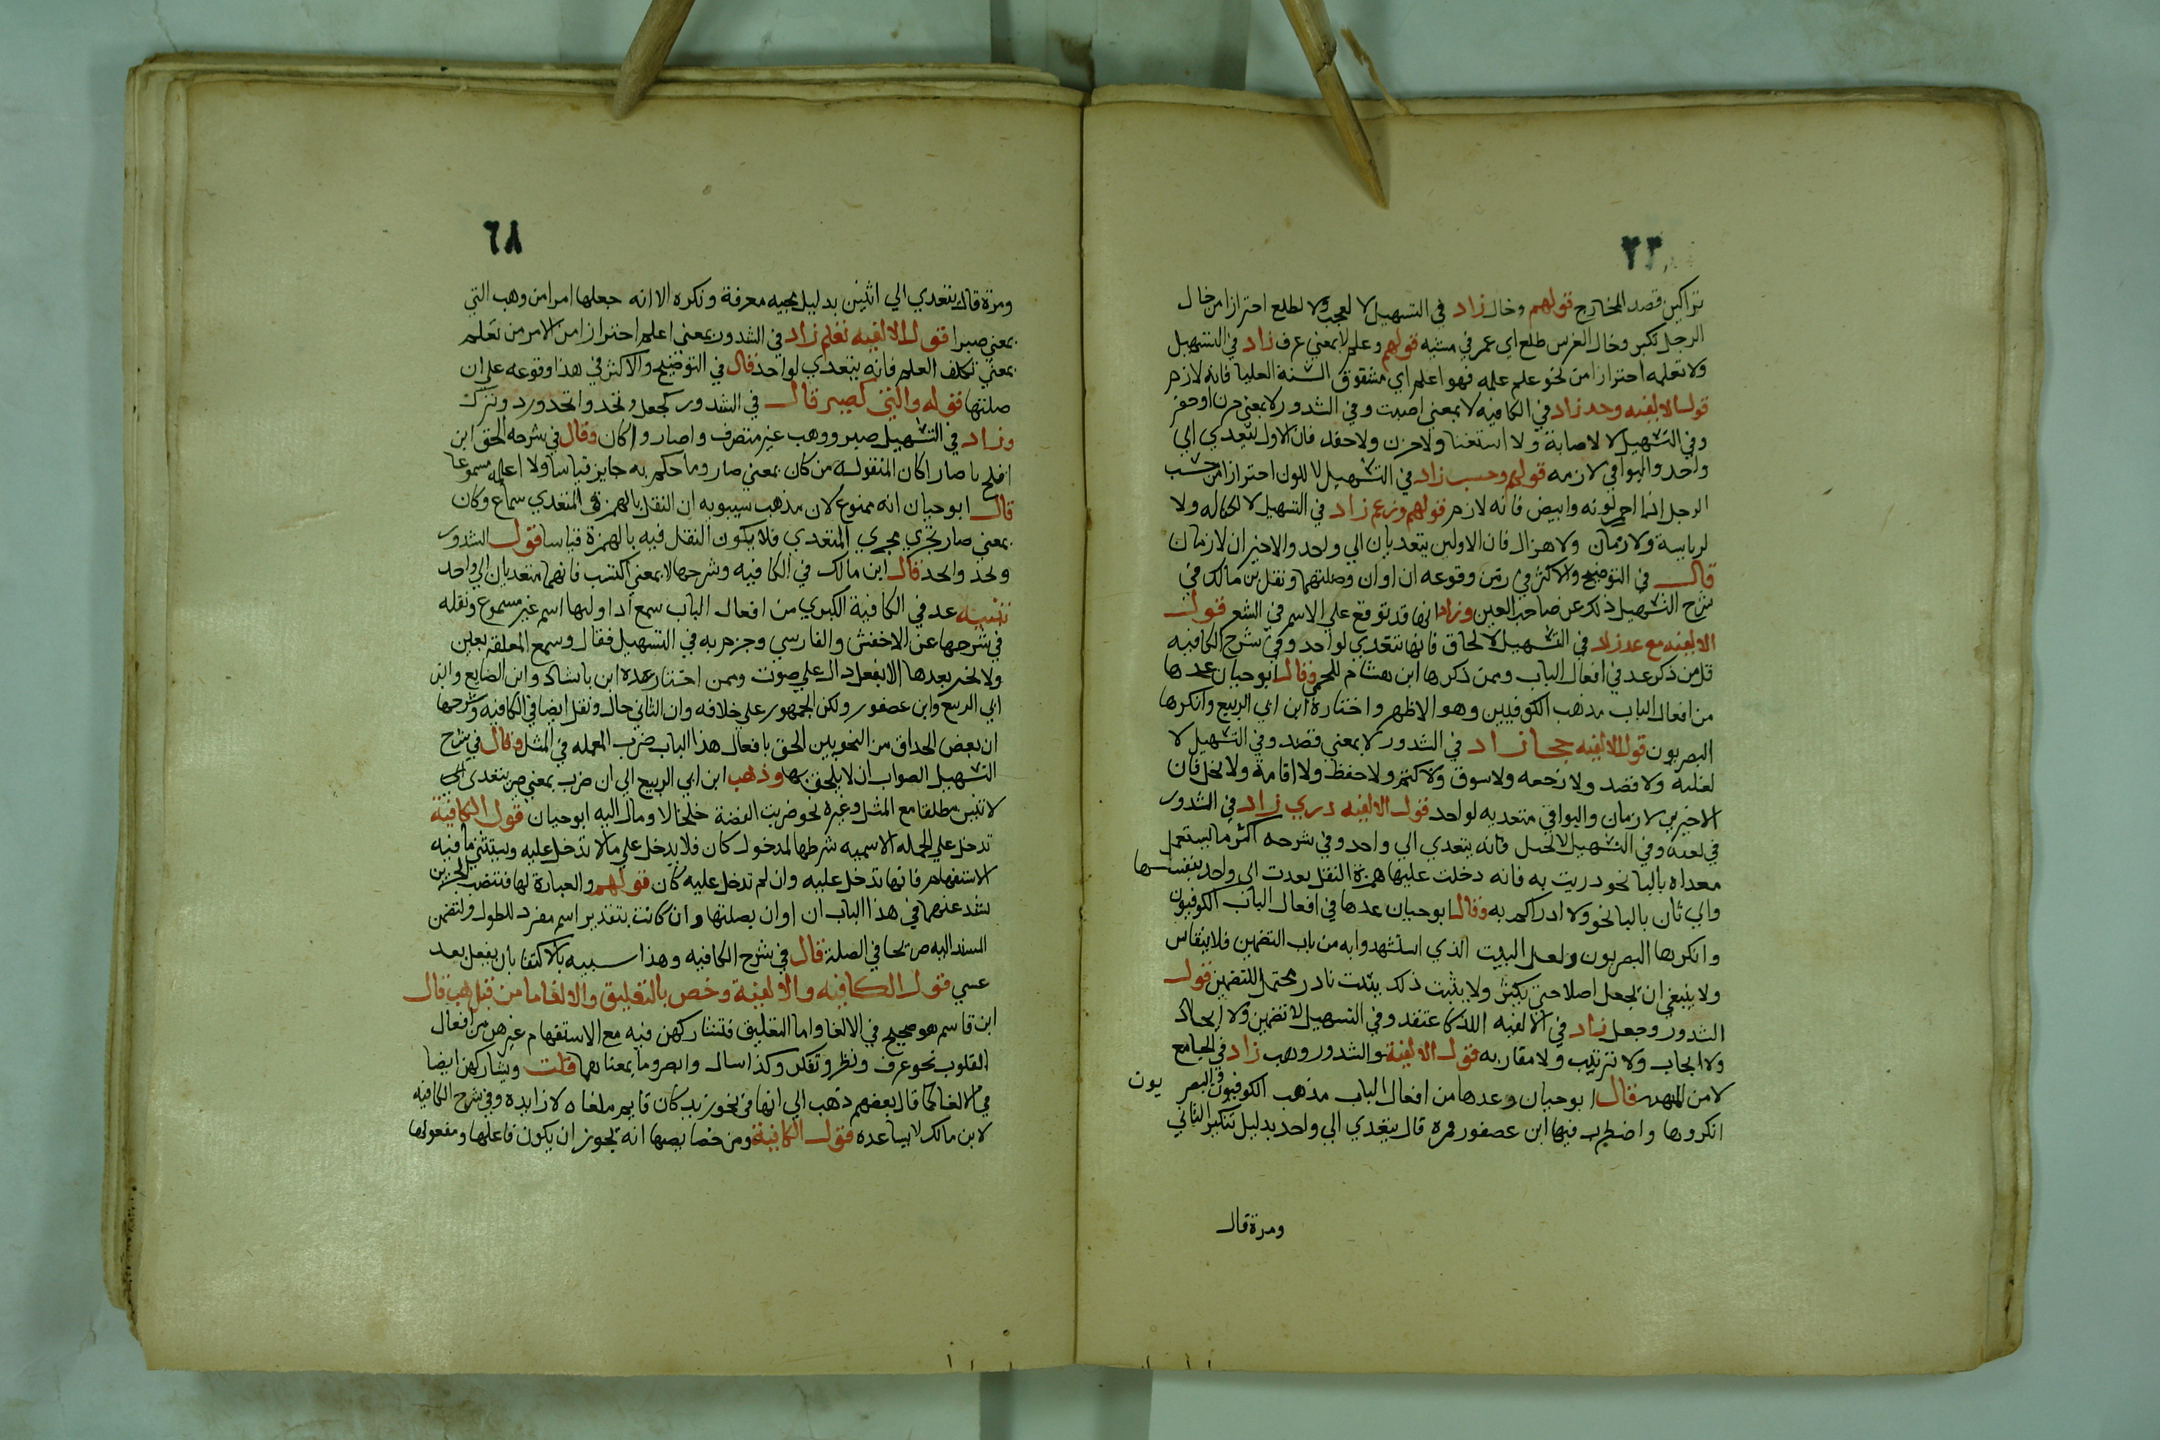 ٢٣
تراكيب قصد المخارج قولهم وخال زاد في التسهيل لا لعجب ولا لطلع احترازا من خال
الرجل تكبر وخال الفرس طلع اي عمر في مشيه قولهم وعلم لا بمعني عرف زاد في التسهيل
ولا تعلمه احترازا من نحو علم علمه فهو اعلم اي مشقوق الشفة العليا فانه لازم
قول الالفيه وجد زاد في الكافيه لا بمعني اصبت وفي الشدور لا بمعني حزن او حقد
وفي التسهيل لا لاصابة ولا استغنا ولا حزن ولا حقد فان الاول يتعدي الي
واحد والبواقي لازمه قولهم وحسب زاد في التسهيل لا للون احترازا من حسب
الرجل اذا احمر لونه وابيض فانه لازم قولهم وزعم زاد في التسهيل لا لكفاله ولا
لرياسة ولا زمان ولا هزال فان الاولين يتعديان الي واحد والاخيران لازمان
قال في التوضيح والاكثر في زعم وقوعه ان وان وصلتهما ونقل بن مالك في
شرح التسهيل ذلك عن صاحب العين وزاد انها قد توقع علي الاسم في الشعر قول
الالفيه مع عد زاد في التسهيل لا لحاق فانها تتعدي لواحد وفي شرح الكافيه
قل من ذكر عد في افعال الباب وممن ذكرها ابن هشام للخمي وقال ابو حيان عدها
من افعال الباب مذهب الكوفيين وهو الاظهر واختاره ابن ابي الربيع وانكرها
البصريون قول الالفيه حجا زاد في الشدور لا بمعني قصد وفي التسهيل لا
لغلبه ولا قصد ولا رجعه ولا سوق ولا كتم ولا حفظ ولا اقامة ولا بخل فان
الاخيرين لازمان والبواقي متعديه لواحد قول الالفيه دري زاد في الشدور
في لغيه وفي التسهيل لا لختل فانه يتعدي الي واحد وفي شرحه اكثر ما يستعمل
معداه بالبا نحو دريت به فانه دخلت عليها همزة النقل تعدت الي واحد بنفسها
والي ثان بالبا نحو ولا ادراكم به وقال ابو حيان عدها في افعال الباب الكوفيون
وانكرها البصريون ولعل البيت الذي استشهدوا به من باب التضمين فلا ينقاس
ولا ينبغي ان يجعل اصلا حتي يكثر ولا يثبت ذلك ببيت نادر محتمل للتضمين قول
الشدور وجعل زاد في الالفيه اللذ كاعتقد وفي التسهيل لا تضمين ولا ايجاد
ولا ايجاب ولا ترتيب ولا مقاربه قول الالفية والشدور وهب زاد في الجامع
لا من الهبة قال ابو حيان وعدها من افعال الباب مذهب الكوفيون والبصريون
انكروها واضطرب فيها ابن عصفور فمره قال يتعدي الي واحد بدليل تنكير الثاني
ومرة قال
٦٨
ومرة قال يتعدي الي اثنين بدليل مجيه معرفة ونكره الا انه جعلها امرا من وهب التي
بمعني صيرا قول الالفيه تعلم زاد في الشدور بمعني اعلم احترازا من الامر من تعلم
بمعني تكلف العلم فانه يتعدي لواحد قال في التوضيح والاكثر في هذا وقوعه علي ان
صلتها قوله والتي كصير قال في الشدور كجعل وتخد واتخد ورد وترك
وزاد في التسهيل صير ووهب غير متصرف واصار واكان وقال في شرحه الحق ابن
افلح باصار اكان المنقوله من كان بمعني صار وما حكم به جايز قياسا ولا اعلمه مسموعا
قال ابو حيان انه ممنوع لان مذهب سيبويه ان النقل بالهمزة في المتعدي سماع وكان
بمعني صار تجري مجري المتعدي فلا يكون النقل فيه بالهمزة قياسا قول الشدور
وتخذ واتخد قال ابن مالك في الكافيه وشرحها لا بمعني اكتسب فانهما متعديان الي واحد
تنبيه عد في الكافية الكبري من افعال الباب سمع اذا وليها اسم غير مسموع ونقله
في شرحها عن الاخفش والفارسي وجزم به في التسهيل فقال وسمع المعلقة بعين
ولا يخبر بعدها الا بفعل دال علي صوت وممن اختار هذه ابن بابشاذ وابن الضايع وابن
ابي الربيع وابن عصفور ولكن الجمهور علي خلافه وان الثاني حال ونقل ايضا في الكافيه وشرحها
ان بعض الحداق من النحويين الحق بافعال هذا الباب ضرب المعمله في المثل وقال في شرح
التسهيل الصواب ان لا يلحق بها وذهب ابن ابي الربيع الي ان ضرب بمعني صير يتعدي الي
لاثنين مطلقا مع المثل وغيره نحو ضربت الفضة خلخالا ومال اليه ابو حيان قول الكافية
تدخل علي الجمله الاسميه شرطها لمدخول كان فلا يدخل علي مالا تدخل عليه ويستثني ما فيه
الاستفهام فانها تدخل عليه وان لم تدخل عليه كان قولهم والعبارة لها فتنصب الجزين
تسد عنهما في هذا الباب ان او ان يصلتها وان كانت بتقدير اسم مفرد للطول ولتضمن
المسند اليه صريحا في الصلة قال في شرح الكافيه وهذا شبيه بالاكتفا بان يفعل بعد
عسي قول الكافيه والالفية وخص بالتعليق والالغا ما من قبل هب قال
ابن قاسم هو صحيح في الالغا واما التعليق فتشاركهن فيه مع الاستفهام غيرهن من افعال
القلوب نحو عرف ونظر وتفكر وكذا سال وابصر وما بمعناهما قلت ويشاركهن ايضا
في الالغا كما قال بعضهم ذهب الي انها في نحو زيد كان قايم ملغاه لا زايده وفي شرح الكافيه
لابن مالك لا يساعده قول الكافية ومن خصايصها انه يجوز ان يكون فاعلها ومفعولها